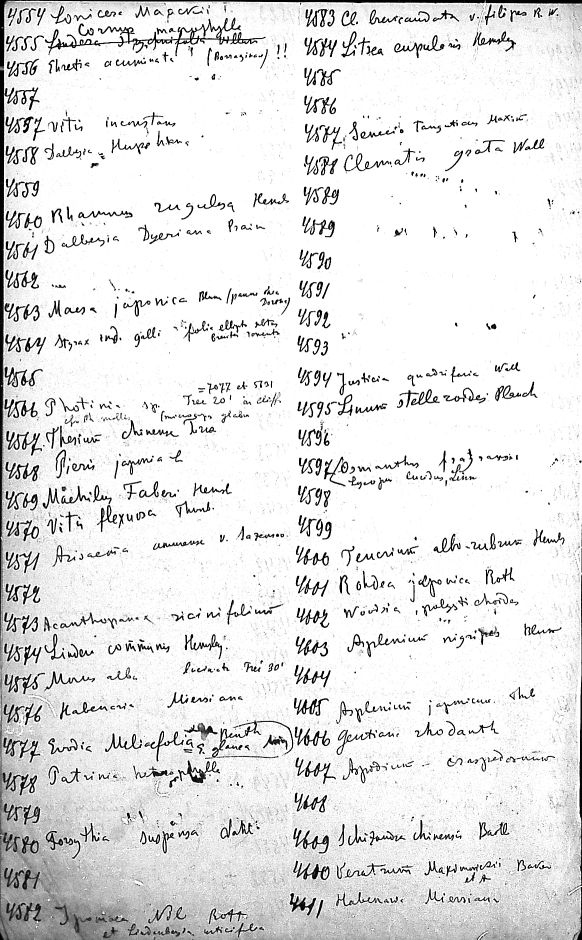 4554 Lonicera Maackii !
Cornus macrophylla
4555 Lindera strychnifolia Villars
4556 Ehretia acuminata (Borragineae) !!
4557
4557 Vitis inconstans
4558 Dalbergia Hupehana
4559
4560 Rhamnus rugulosa Hemsl
4561 Dalbergia Dyeriana Prain
4562
4563 Maesa japonica Blum
4564 Styrax ind. galli folia ellipt.
4565
= 7077 et 5531
4566 Photinia sp. Tree 20' in cliff
4567 Thesium chinense Turcz
4568 Pieris japonica
4569 Machilus Faberi Hemsl
4570 Vitis flexuosa Thunb.
4571 Arisaema amurense v.
4572
4573 Acanthopanax ricinifolium
4574 Lindera communis Hemsley
4575 Morus alba Tree 30'
4576 Habenaria Miersiana
4577 Evodia Meliaefolia Benth
E. glauca Miq
4578 Patrinia heterophylla
4579
4580 Forsythia suspensa Vahl.
4581
4582 Ipomaea Nil Roth
et Lindenbergia urticifolia
4583 Cl. brevicaudata v. filipes R. W.
4584 Litsea cupularis Hemsley
4585
4586
4587 Senecio Tanguticus Maxim
4588 Clematis grata Wall
4589
4589
4590
4591
4592
4593
4594 Justicia quadrifaria Wall
4595 Linum stelleroides Planch
4596
4597 Osmanthus fragrans
Lycopus lucidus
4598
4599
4600 Teucrium albo-rubrum Hemsl
4601 Rohdea japonica Roth
4602 Woodsia polystichoides
4603 Asplenium nigripes Blum
4604
4605 Asplenium japonicum Thbl
4606 Gentiana rhodanth
4607 Aspidium craspedosorum
4608
4609 Schizandra chinensis Baill
4600 Veratrum Maximowiczii Baker
4611 Habenaria Miersiana